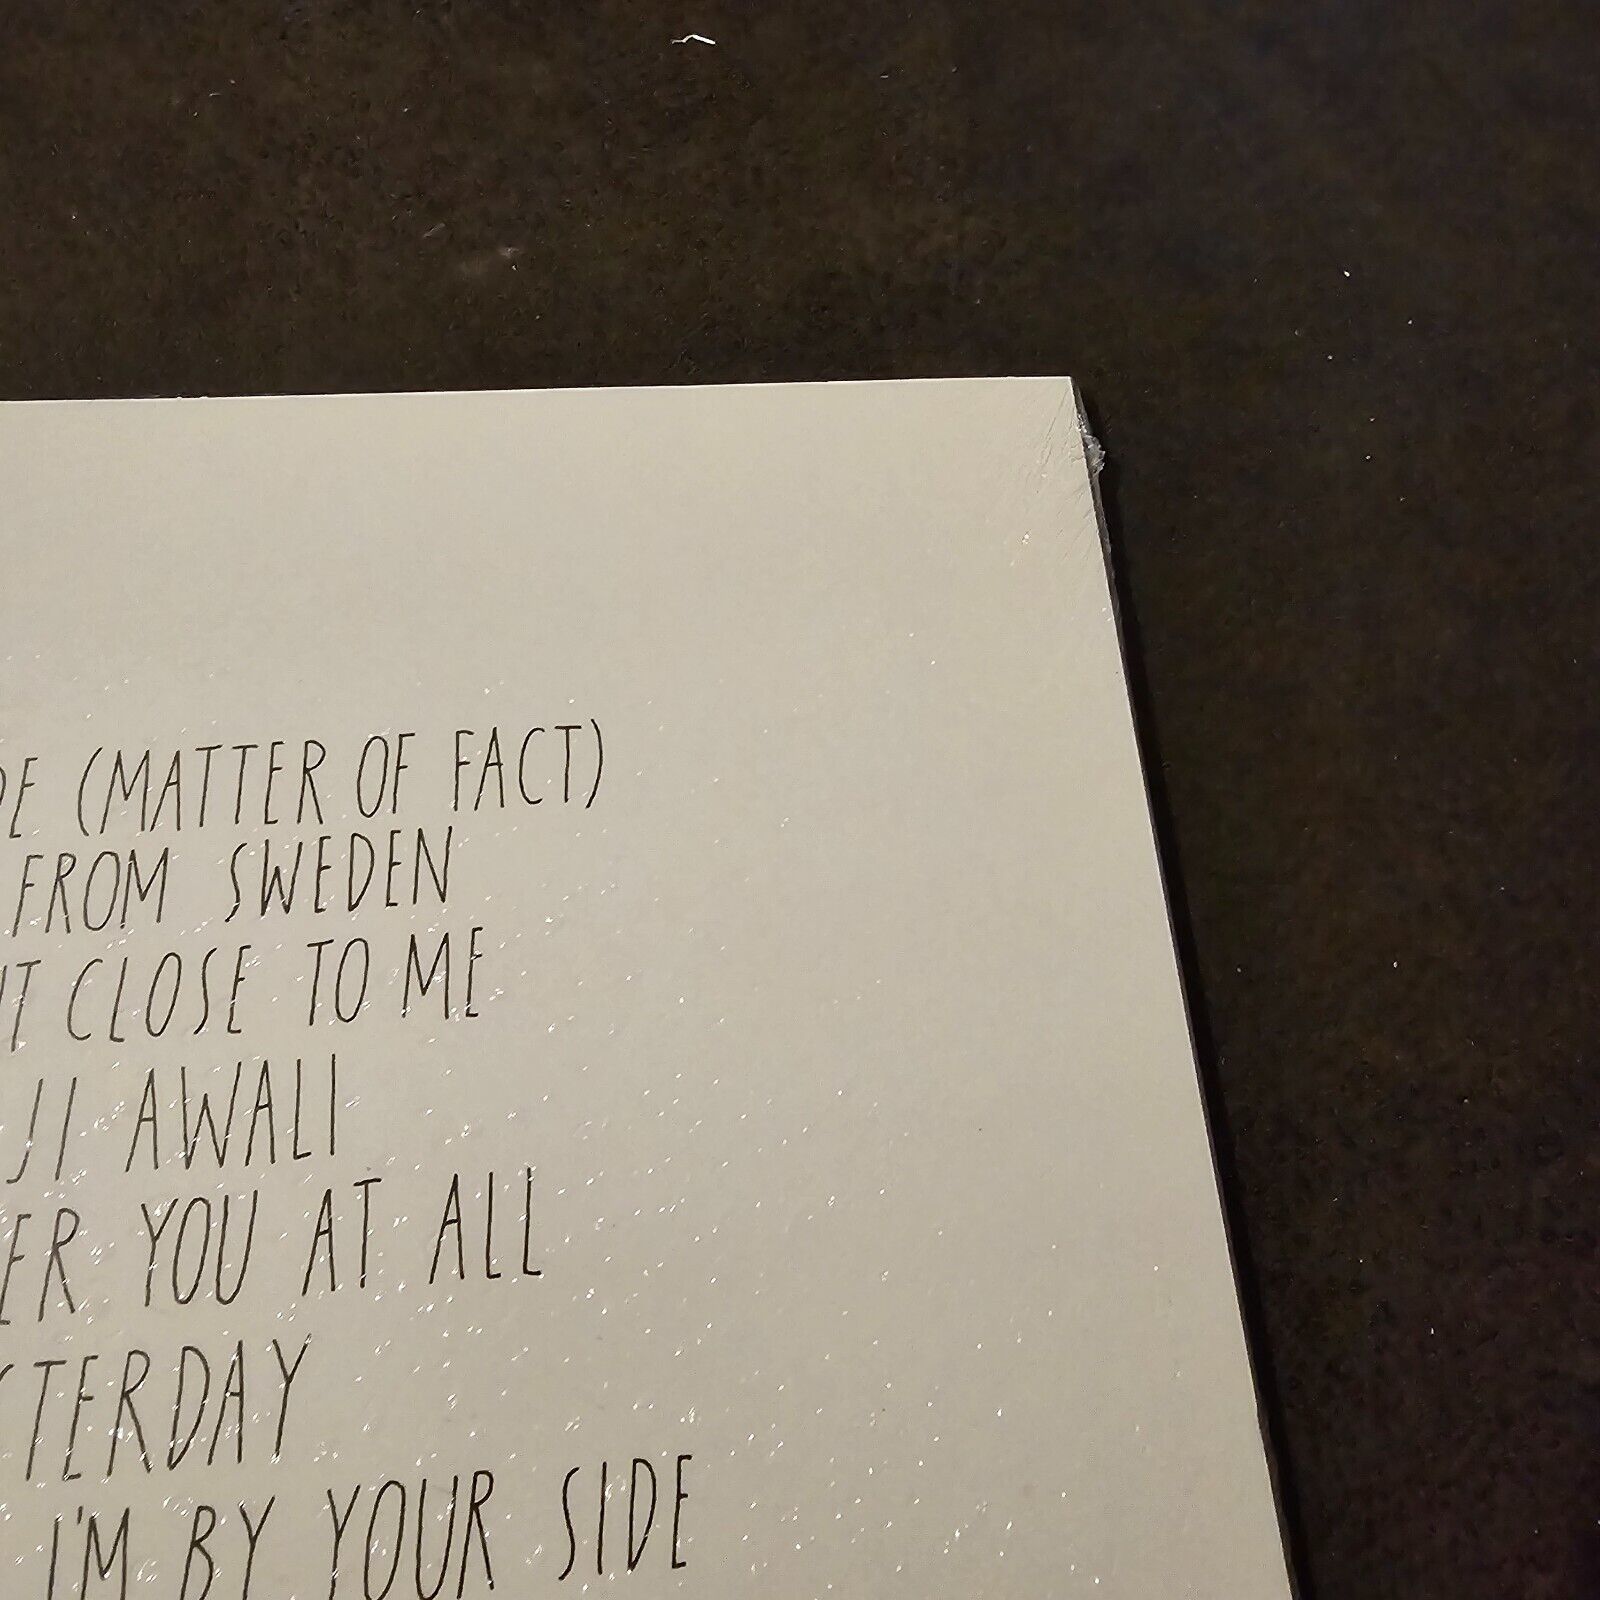 DE (MATTER OF FACT)
FROM SWEDEN
CLOSE TO ME
JI AWALI
ER YOU AT ALL
STERDAY
I'M BY YOUR SIDE